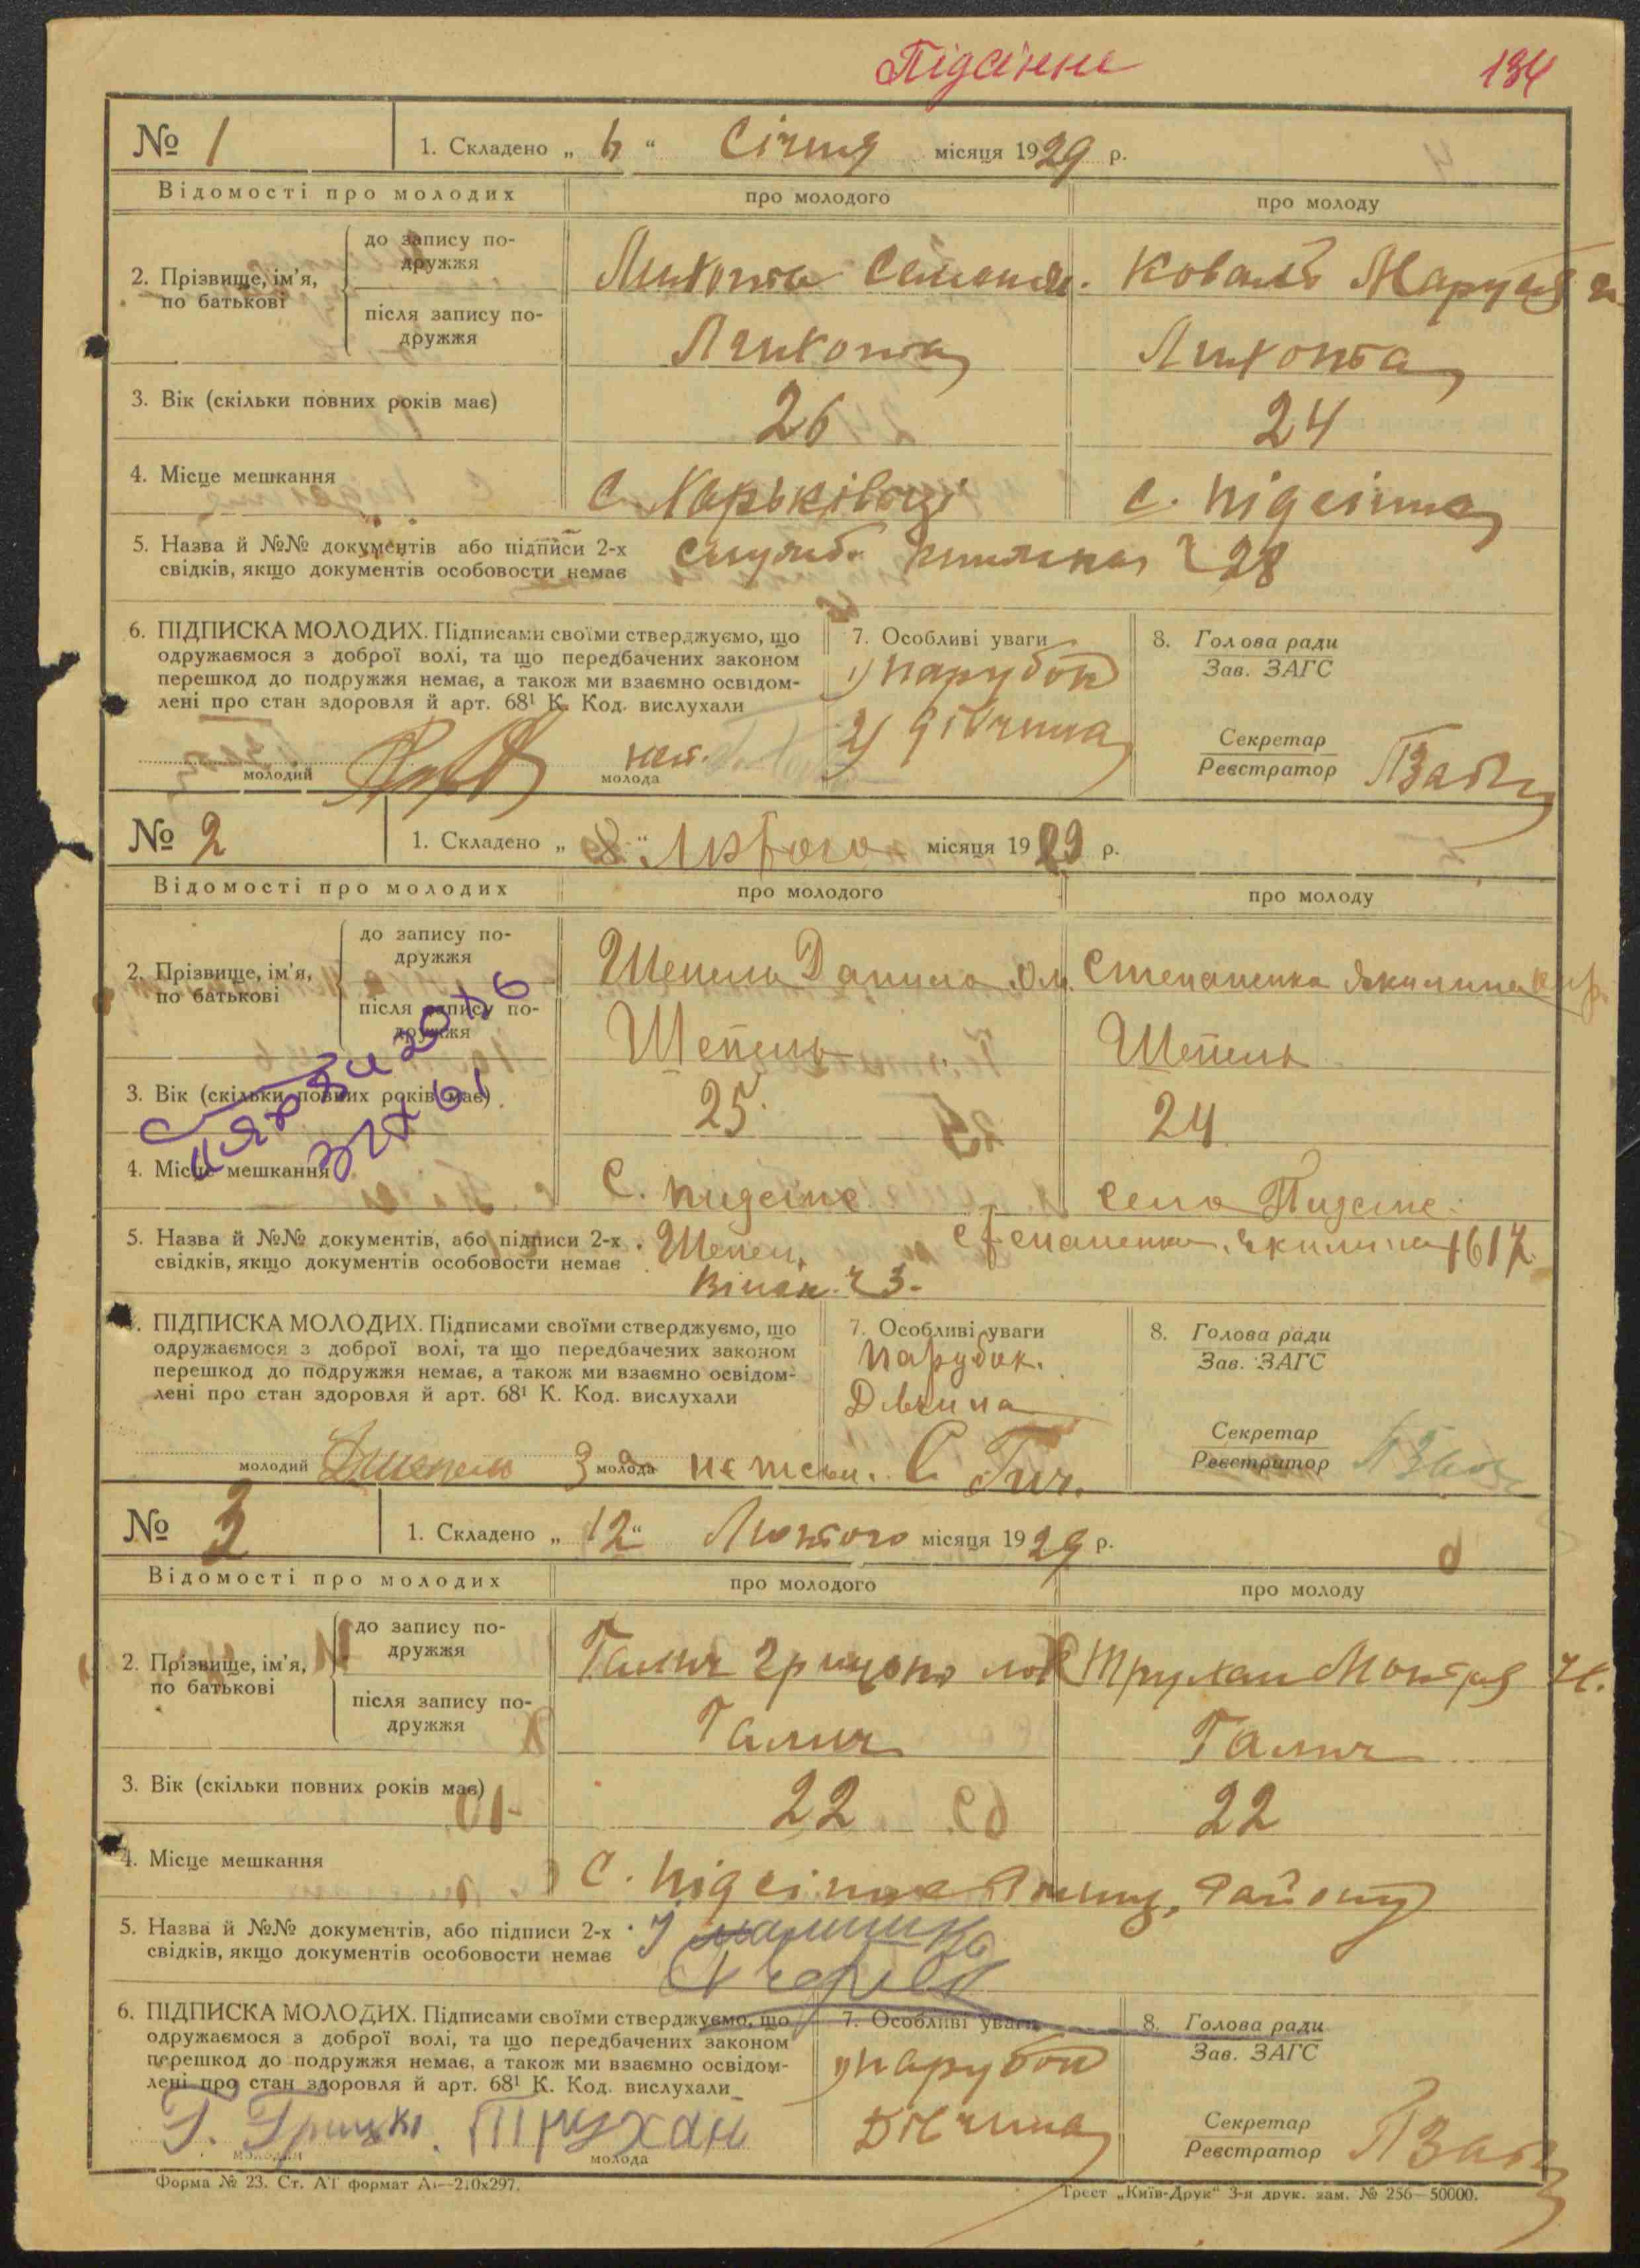 Підсінне
134
№ 1
1. Складено „ 6 “ Січня місяця 1929 р.
Відомості про молодих
про молодого
про молоду
2. Прізвище, ім’я, по батькові
до запису по-
дружжя
Коваль Маруся
після запису по-
дружжя
3. Вік (скільки повних років має)
26
24
4. Місце мешкання
с. Харьківці
с. Підсінна
5. Назва й №№ документів або підписи 2-х
свідків, якщо документів особовости немає
28
6. ПІДПИСКА МОЛОДИХ. Підписами своїми стверджуємо, що
одружаємося з доброї волі, та що передбачених законом
перешкод до подружжя немає, а також ми взаємно освідом-
лені про стан здоров­ля й арт. 68¹ К. Код. вислухали
молодий
молода
7. Особливі уваги
1) парубок
2) дівчина
8. Голова ради
Зав. ЗАГС
Секретар
Реєстратор
№ 2
1. Складено „ 8 “ Лютого місяця 1929 р.
Відомості про молодих
про молодого
про молоду
2. Прізвище, ім’я,
по батькові
до запису по-
дружжя
Шепель Данило Ом.
Степаненко Якилина
після запису по-
дружжя
Шепель
Шепель
3. Вік (скільки повних років має)
25
24
4. Місце мешкання
с. Пидсіне
село Пидсіне
5. Назва й №№ документів, або підписи 2-х
свідків, якщо документів особовости немає
Шепель
Степаненко Якилина 1617
ч 3.
6. ПІДПИСКА МОЛОДИХ. Підписами своїми стверджуємо, що
одружаємося з доброї волі, та що передбачених законом
перешкод до подружжя немає, а також ми взаємно освідом-
лені про стан здоровля й арт. 68¹ К. Код. вислухали
молодий
Дшепель
За
молода
7. Особливі уваги
Парубок.
Дівчина
8. Голова ради
Зав. ЗАГС
Секретар
Реєстратор
№ 3
1. Складено „ 12 “ Лютого місяця 1929 р.
Відомості про молодих
про молодого
про молоду
2. Прізвище, ім’я,
по батькові
до запису по-
дружжя
Галич
Трухан Мотря
після запису по-
дружжя
Галич
Галич
3. Вік (скільки повних років має)
22
22
4. Місце мешкання
с. Підсінна
Району
5. Назва й №№ документів, або підписи 2-х
свідків, якщо документів особовости немає
6. ПІДПИСКА МОЛОДИХ. Підписами своїми стверджуємо, що
одружаємося з доброї волі, та що передбачених законом
перешкод до подружжя немає, а також ми взаємно освідом-
лені про стан здоровля й арт. 68¹ К. Код. вислухали
Г. Грицко
молодий
Трухан
молода
7. Особливі уваги
1) парубок
Дівчина
8. Голова ради
Зав. ЗАГС
Секретар
Реєстратор
Форма № 23. Ст. АТ формат А₄—210х297.
Трест „Київ-Друк“ 3-я друк. зам. № 256—50000.